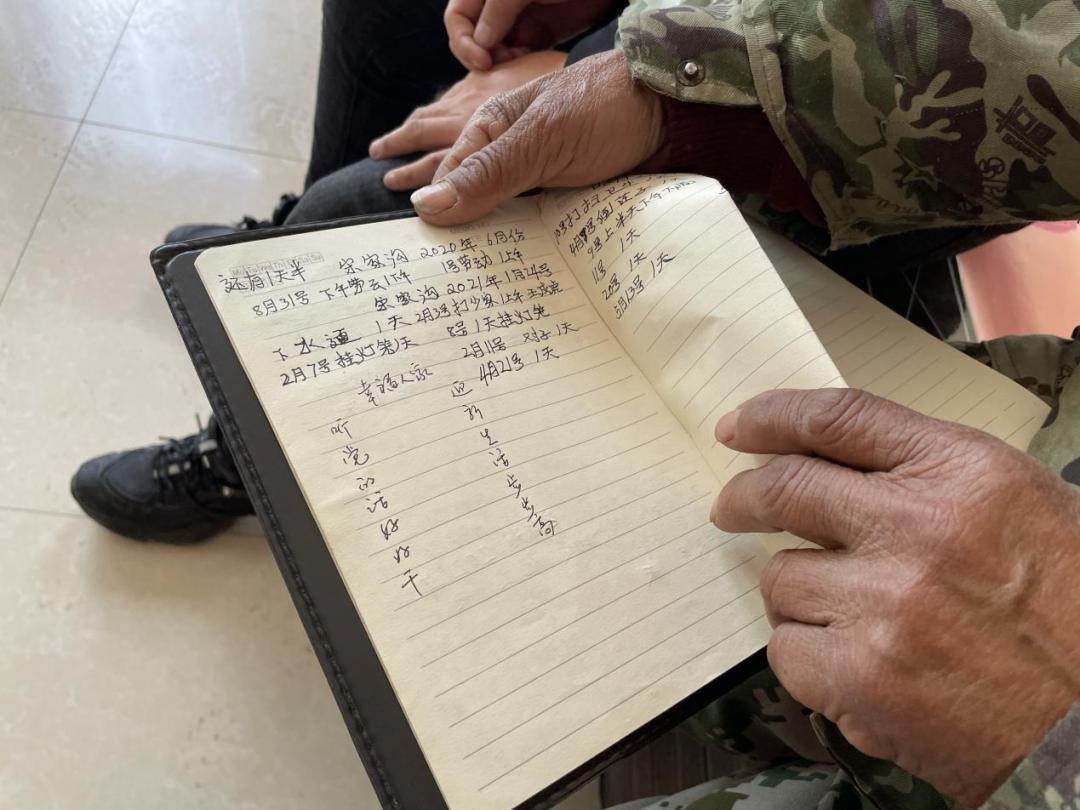 还有1天半 宋家沟 2020年6月份
8月31号 下午劳动1下午 1号劳动1上午
宋家沟 2021年1月24号
下水道 1天 2月3号打 1上午
2月7号挂灯笼1天 8号1天挂灯笼
2月11号 对子1天
幸福人家 4月21号 1天
听党的话好好干
迎新生活步步高
打扫卫生
4月7号
9号上半天下午
11号 1天
20号 1天
5月13号 1天